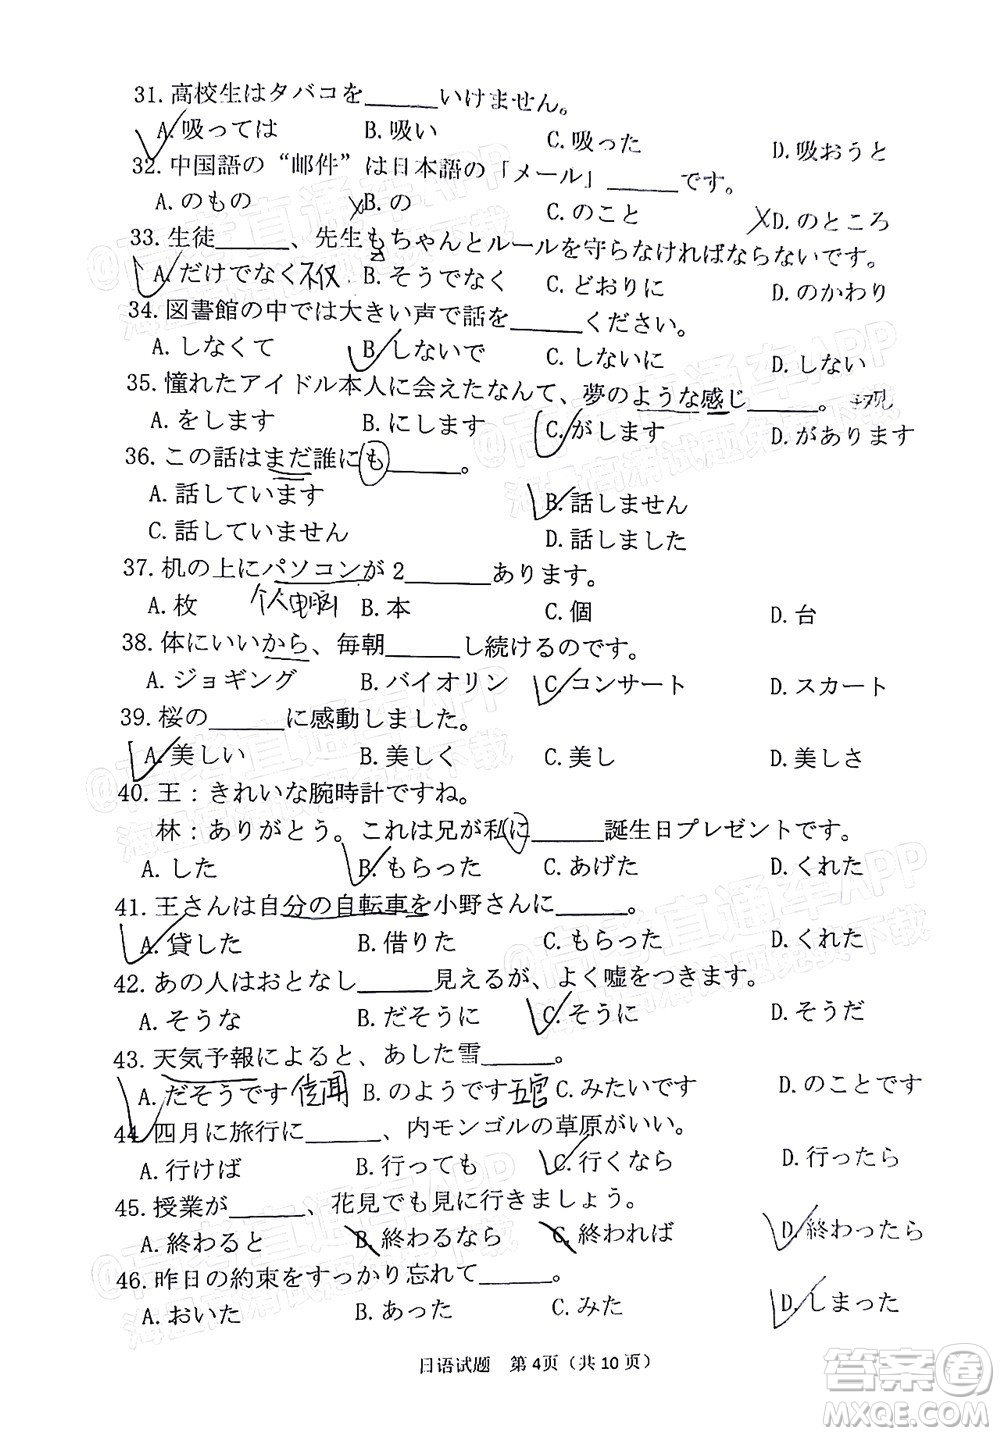 31. 高校生はタバコを______いけません。
A. 吸っては B. 吸い C. 吸った D. 吸おうと
32. 中国語の“邮件”は日本語の「メール」______です。
A. のもの B. の C. のこと D. のところ
33. 生徒______、先生もちゃんとルールを守らなければならないです。
A. だけでなく 不仅 B. そうでなく C. どおりに D. のかわり
34. 図書館の中では大きい声で話を______ください。
A. しなくて B. しないで C. しないに D. しない
35. 憧れたアイドル本人に会えたなんて、夢のような感じ______。
A. をします B. にします C. がします D. があります
36. この話はまだ誰にも______。
A. 話しています B. 話しません
C. 話していません D. 話しました
37. 机の上にパソコンが 2______あります。
个人电脑
A. 枚 B. 本 C. 個 D. 台
38. 体にいいから、毎朝______し続けるのです。
A. ジョギング B. バイオリン C. コンサート D. スカート
39. 桜の______に感動しました。
A. 美しい B. 美しく C. 美し D. 美しさ
40. 王：きれいな腕時計ですね。
林：ありがとう。これは兄が私に______誕生日プレゼントです。
A. した B. もらった C. あげた D. くれた
41. 王さんは自分の自転車を小野さんに______。
A. 貸した B. 借りた C. もらった D. くれた
42. あの人はおとなし______見えるが、よく嘘をつきます。
A. そうな B. だそうに C. そうに D. そうだ
43. 天気予報によると、あした雪______。
A. だそうです 传闻 B. のようです 五官 C. みたいです D. のことです
44. 四月に旅行に______、内モンゴルの草原がいい。
A. 行けば B. 行っても C. 行くなら D. 行ったら
45. 授業が______、花見でも見に行きましょう。
A. 終わると B. 終わるなら C. 終われば D. 終わったら
46. 昨日の約束をすっかり忘れて______。
A. おいた B. あった C. みた D. しまった
日语试题 第 4页（共 10 页）
@高考直通车APP
海量高清试题免费下载
答案卷
MXQE.COM